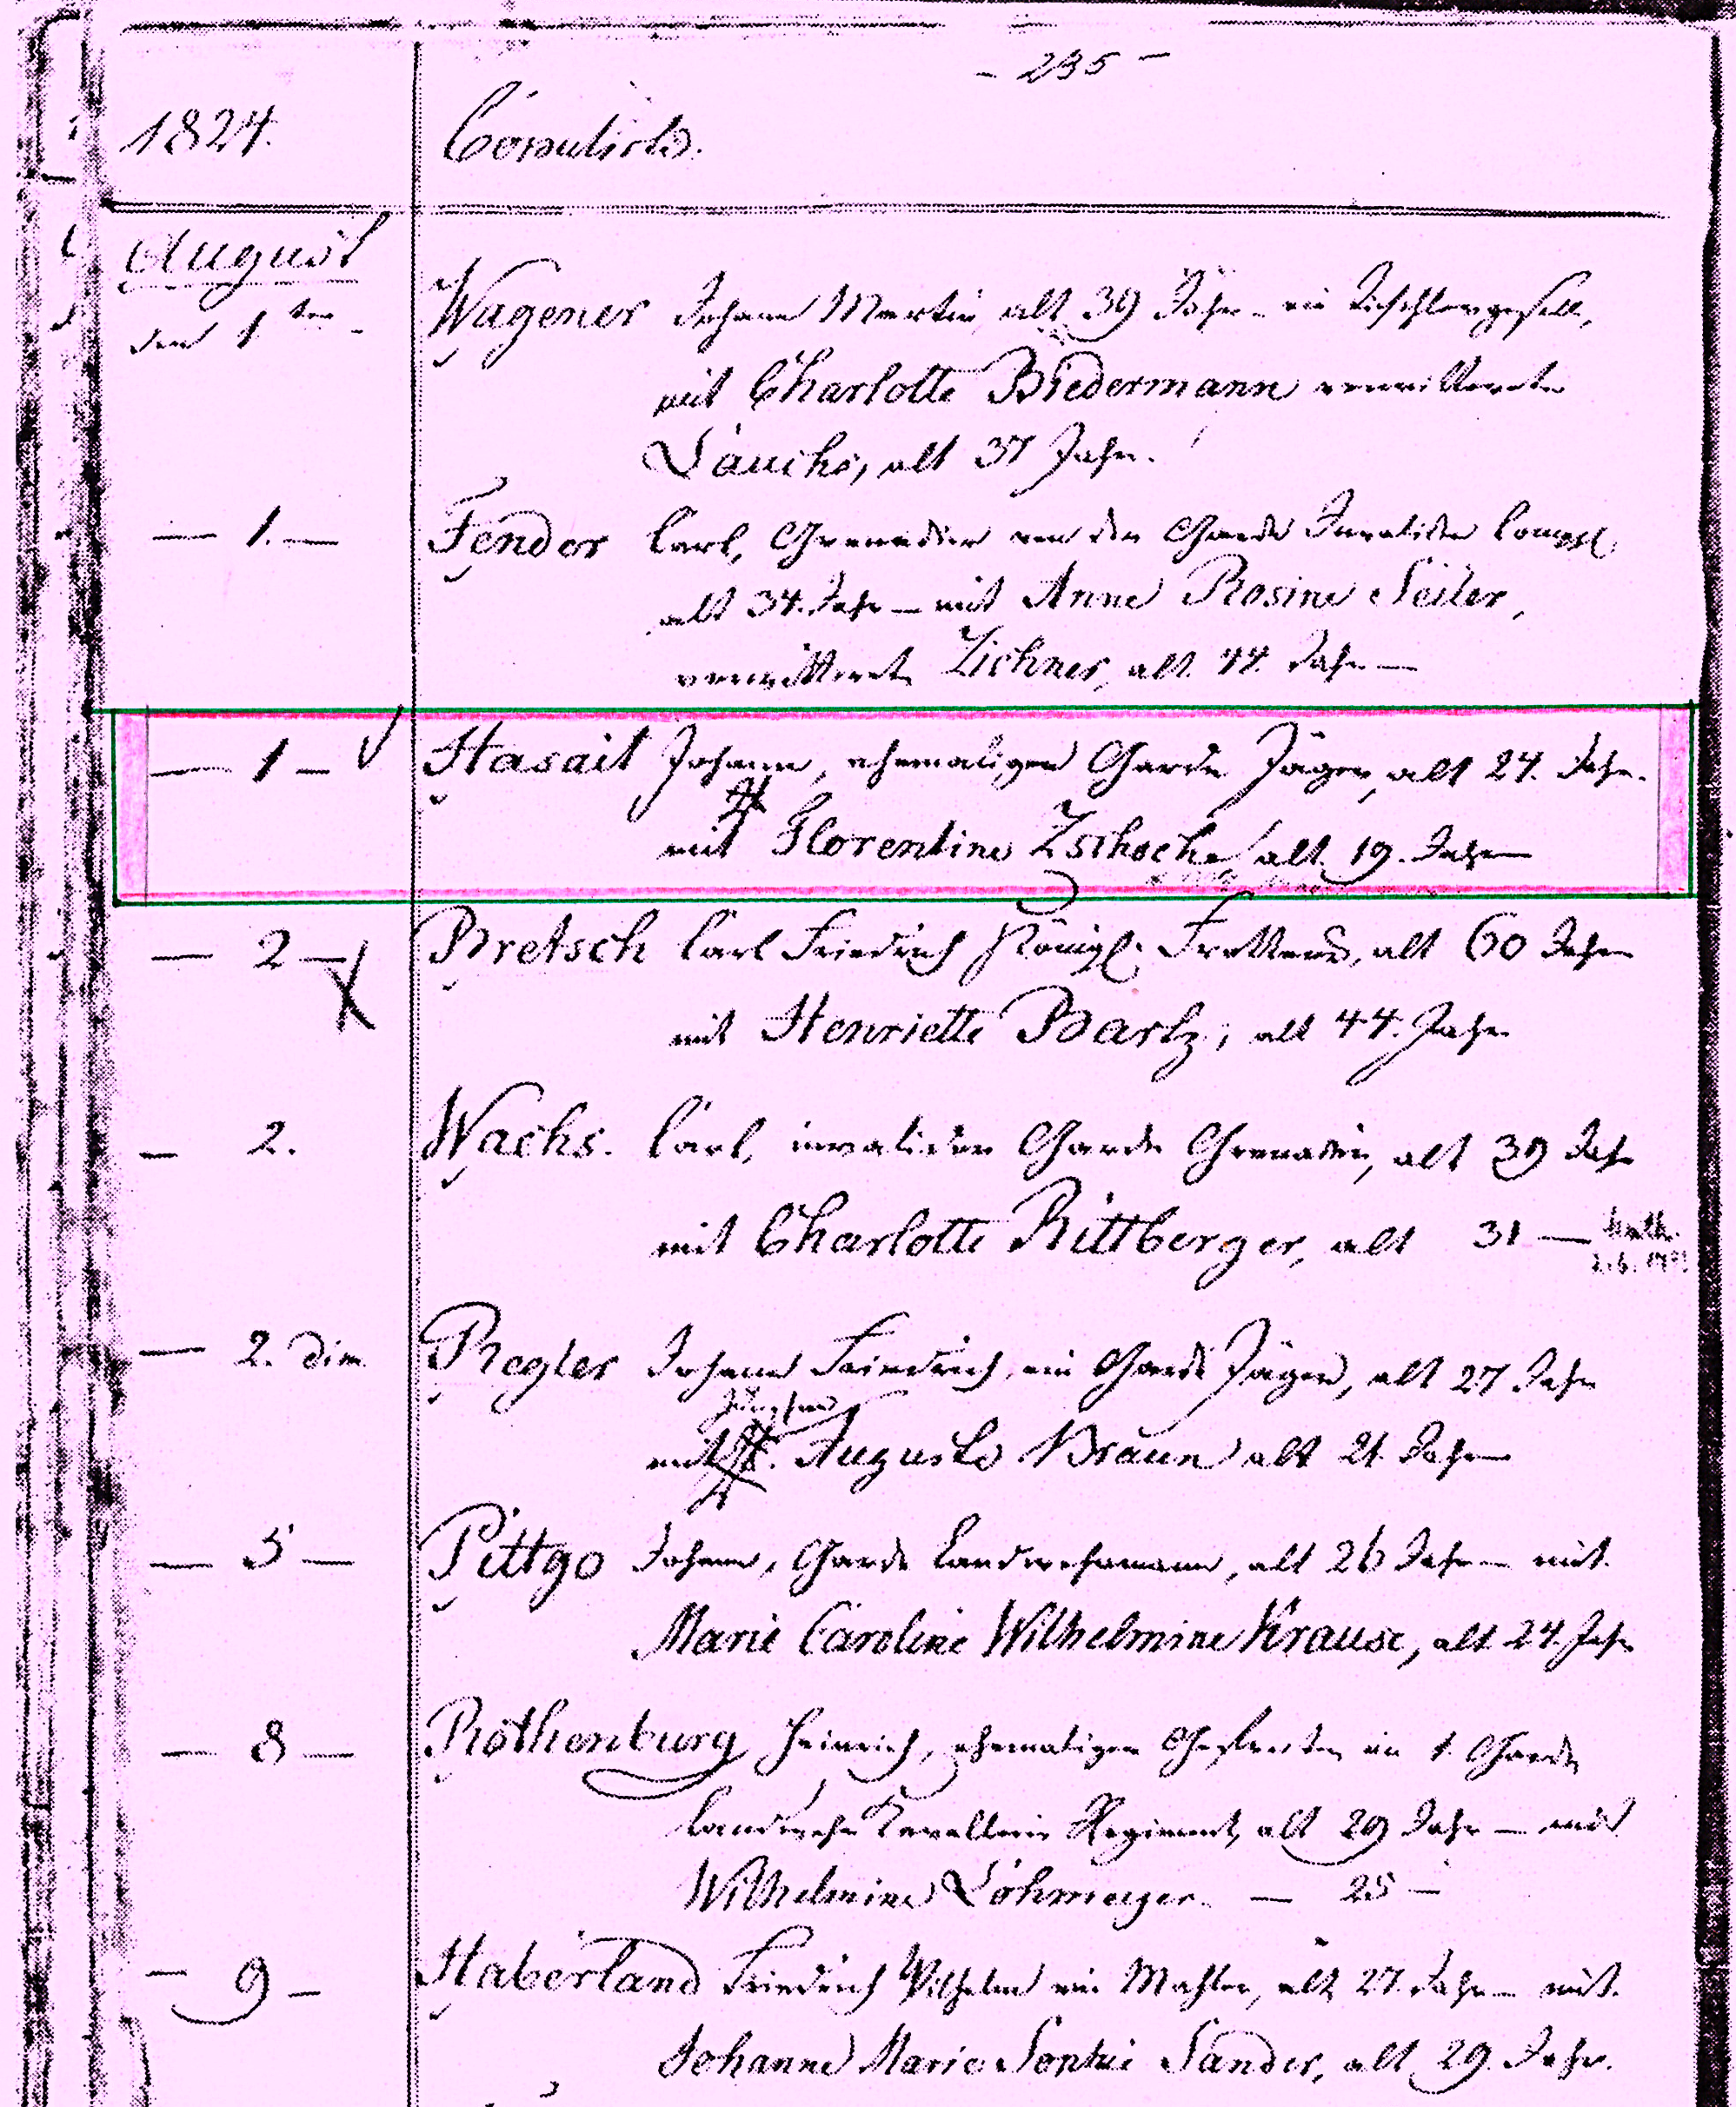 - 235 -
1824. Copulirte.
August
den 1ten - Wagener Johann Martin alt 39 Jahr - ein Tischlergesell,
mit Charlotte Biedermann verwittwete
Lauche, alt 37 Jahr.
— 1. — Fendor Carl, Grenadier von der Garde Invaliden Comp.
alt 34. Jahr — mit Anne Rosine Seiler,
verwittwete Zichner, alt. 44. Jahr —
— 1 — Hasait Johann, ehemaliger Garde Jäger, alt 24. Jahr.
mit Florentine Zschoche alt 19. Jahr —
— 2 — Bretsch Carl Friedrich Königl. alt 60 Jahr
mit Henriette Bartz, alt 44. Jahr
— 2. Wachs. Carl, invalider Garde Grenadier, alt 39 Jahr
mit Charlotte Rittberger, alt 31 —
— 2. dim Regler Johann Friedrich, ein Garde Jäger, alt 27 Jahr
Jungfrau
mit Auguste Braun alt 21. Jahr
— 5 — Pittgo Johann, Garde Landwehrmann, alt 26 Jahr — mit
Marie Caroline Wilhelmine Krause, alt 24. Jahr
— 8 — Rothenburg Heinrich, ehemaliger Gefreiter im 1. Garde
Landwehr Kavallerie Regiment, alt 29 Jahr — mit
Wilhelmine Lohmeyer. — 25 —
— 9 — Haberland Friedrich Wilhelm ein Mahler, alt 27. Jahr — mit
Johanne Marie Sophie Sander, alt 29. Jahr.